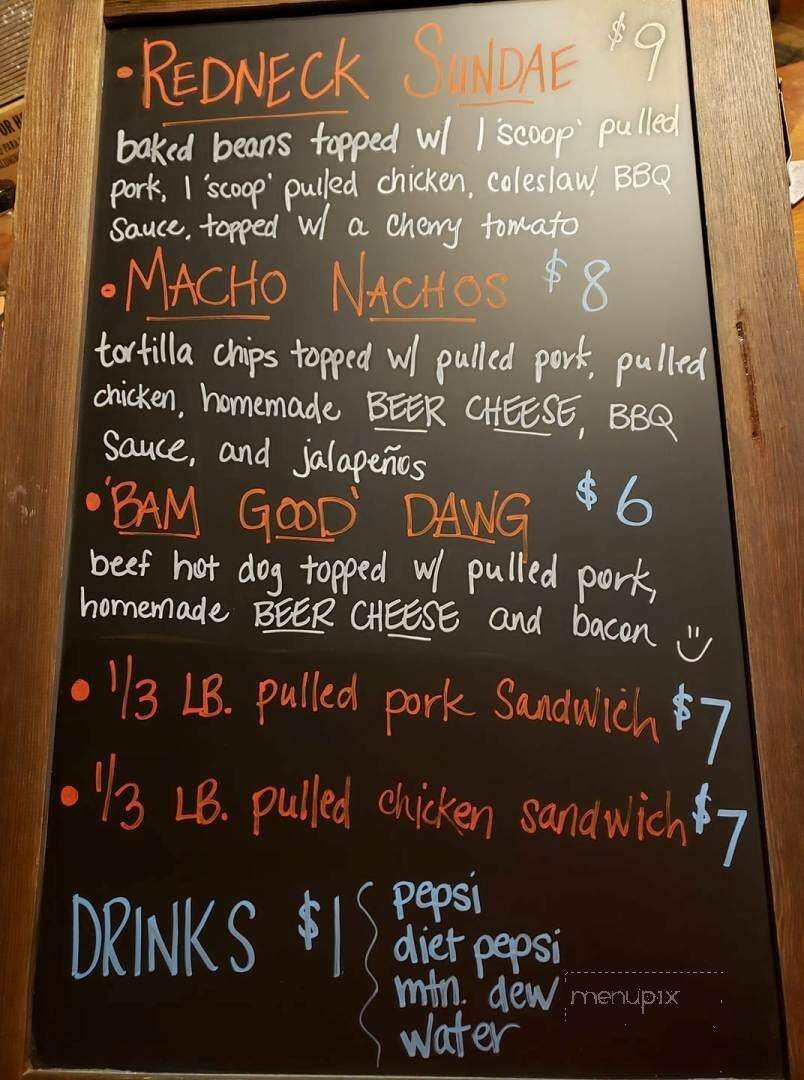 • REDNECK SUNDAE $9
baked beans topped w/ 1 'scoop' pulled
pork, 1 'scoop' pulled chicken, coleslaw, BBQ
Sauce, topped w/ a cherry tomato
• MACHO NACHOS $8
tortilla chips topped w/ pulled pork, pulled
chicken, homemade BEER CHEESE, BBQ
Sauce, and jalapeños
• 'BAM GOOD' DAWG $6
beef hot dog topped w/ pulled pork,
homemade BEER CHEESE and bacon
• 1/3 LB. pulled pork Sandwich $7
• 1/3 LB. pulled chicken sandwich $7
DRINKS $1
pepsi
diet pepsi
mtn. dew
water
menupix